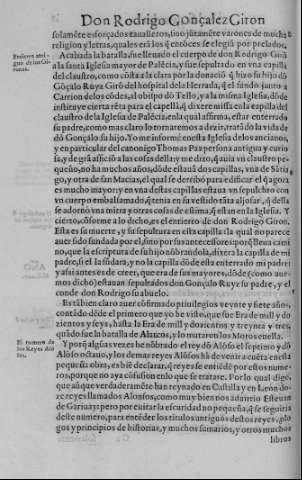 Don Rodrigo Gonçalez Giron
solamẽte esforçados caualleros, sino jũtamẽte varones de mucha
religion y letras, quales erã los q̃ entõces de elegiã por prelados.
Acabada la batalla, fue lleuado el cuerpo de don Rodrigo Gõçã
a la santa Iglesia mayor de Palẽcia, y fue sepultado en vna capilla
del claustro, como cõsta a la clara por la donaciõ q̃ hizo su hijo dõ
Gõçalo Ruyz Girõ del hospital de la Herrada, q̃ el fundò junto a
Carrion de los cõdes, al obispo dõ Tello, y a la misma Iglesia, dõde
instituye cierta rẽta para el capellã, q̃ dixere missa en la capilla del
claustro de la Iglesia de Palẽcia, en la qual affirma, estar enterrado
su padre, como mas claro lo tornaremos a dezir, tratãdo la vida de
dõ Gonçalo su hijo. Yo me informè como en esta Iglesia de anciãos,
y en particular del canonigo Thomas Paz persona antigua y curio
sa, y de grã afficiõ a las cosas della, y me dixo, q̃ auia vn claustro pe-
queño, no ha muchos años, dõde estauã dos capillas, vna de Sãtia-
go, y otra de san Macias, el qual se derribò para edificar el q̃ agora
es mucho mayor: y en vna destas capillas estaua vn sepulchro con
vn cuerpo embalsamado, q̃ tenia en su vestido tãta aljofar, q̃ della
se adornò vna mitra y otras cosas de estima, q̃ estan en la Iglesia. Y
cierto, cõforme a lo dicho, es el entierro de don Rodrigo Girõn.
Esta es su muerte, y su sepultura en esta capilla la qual no parece
auer sido fundada por el, sino por sus antecessores: porq̃ lleua cami
no, que la escriptura de su hijo nõbrandola, dixera la capilla de mi
padre, si el la fũdara, y no la capilla dõde esta enterrado mi padre:
y assi antes es de creer, que era de sus mayores, dõde (como aue-
mos dicho) estauan sepultados don Gonçalo Ruyz su padre, y el
conde don Rodrigo su abuelo.
Es tãbien claro auer cõfirmado priuilegios veynte y siete años,
contãdo desde el primero que yo he visto, que fue Era de mill y do
zientos y seys, hasta la Era de mill y dozientos y treynta y tres,
quãdo fue la batalla de Alarcos, y lo mataron los Moros en ella.
Y porq̃ algũas vezes he nõbrado al rey dõ Alõso el septimo y dõ
Alõso octauo, y los demas reyes Alõsos hã de venir a cuẽta en esta
pequeña obra, es biẽ declarar, q̃ reyes se entiẽde por estos nume-
ros, porque no aya cõfusion en lo que se tratare. Por lo qual digo,
que aũque verdaderamẽte han reynado en Castilla y en Leon do-
ze reyes llamados Alonsos, como muy bien nos adarrio Esteuan
de Garibay: pero por euitar la escuridad no pequeña, q̃ se seguiria
deste numero, para entẽder los titulos antiguos destos reyes, plo
gos y principios de historias, y muchos sumarios, y otros muchos
libros
El numero de
los Reyes Alõ
sos.